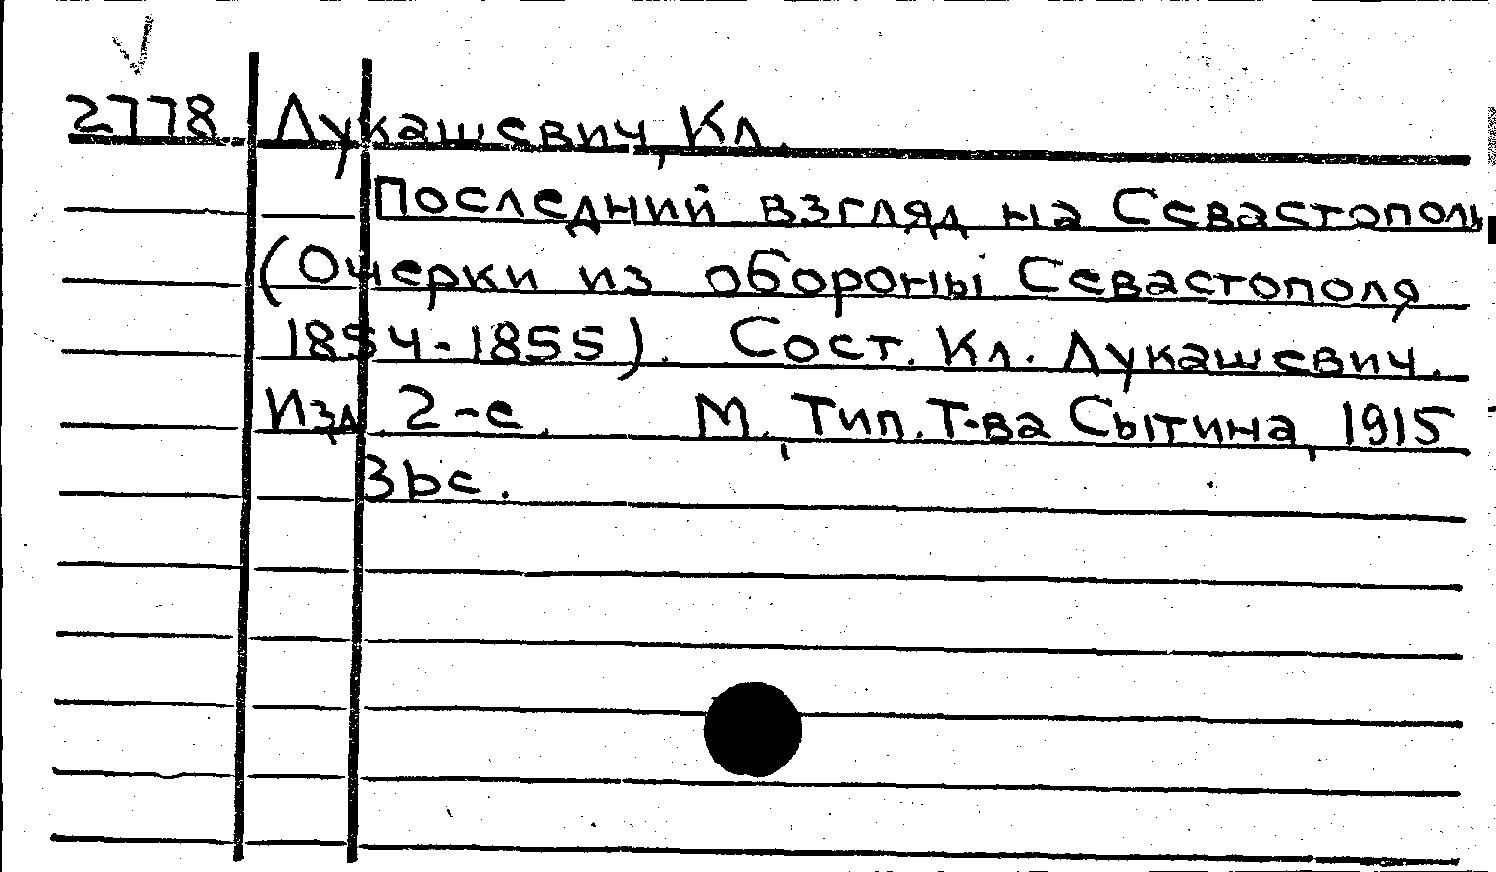 2778 Лукашевич, Кл.
Последний взгляд на Севастополь
(Очерки из обороны Севастополя
1854-1855). Сост. Кл. Лукашевич.
Изд. 2-е. М., Тип. Т-ва Сытина, 1915
36с.